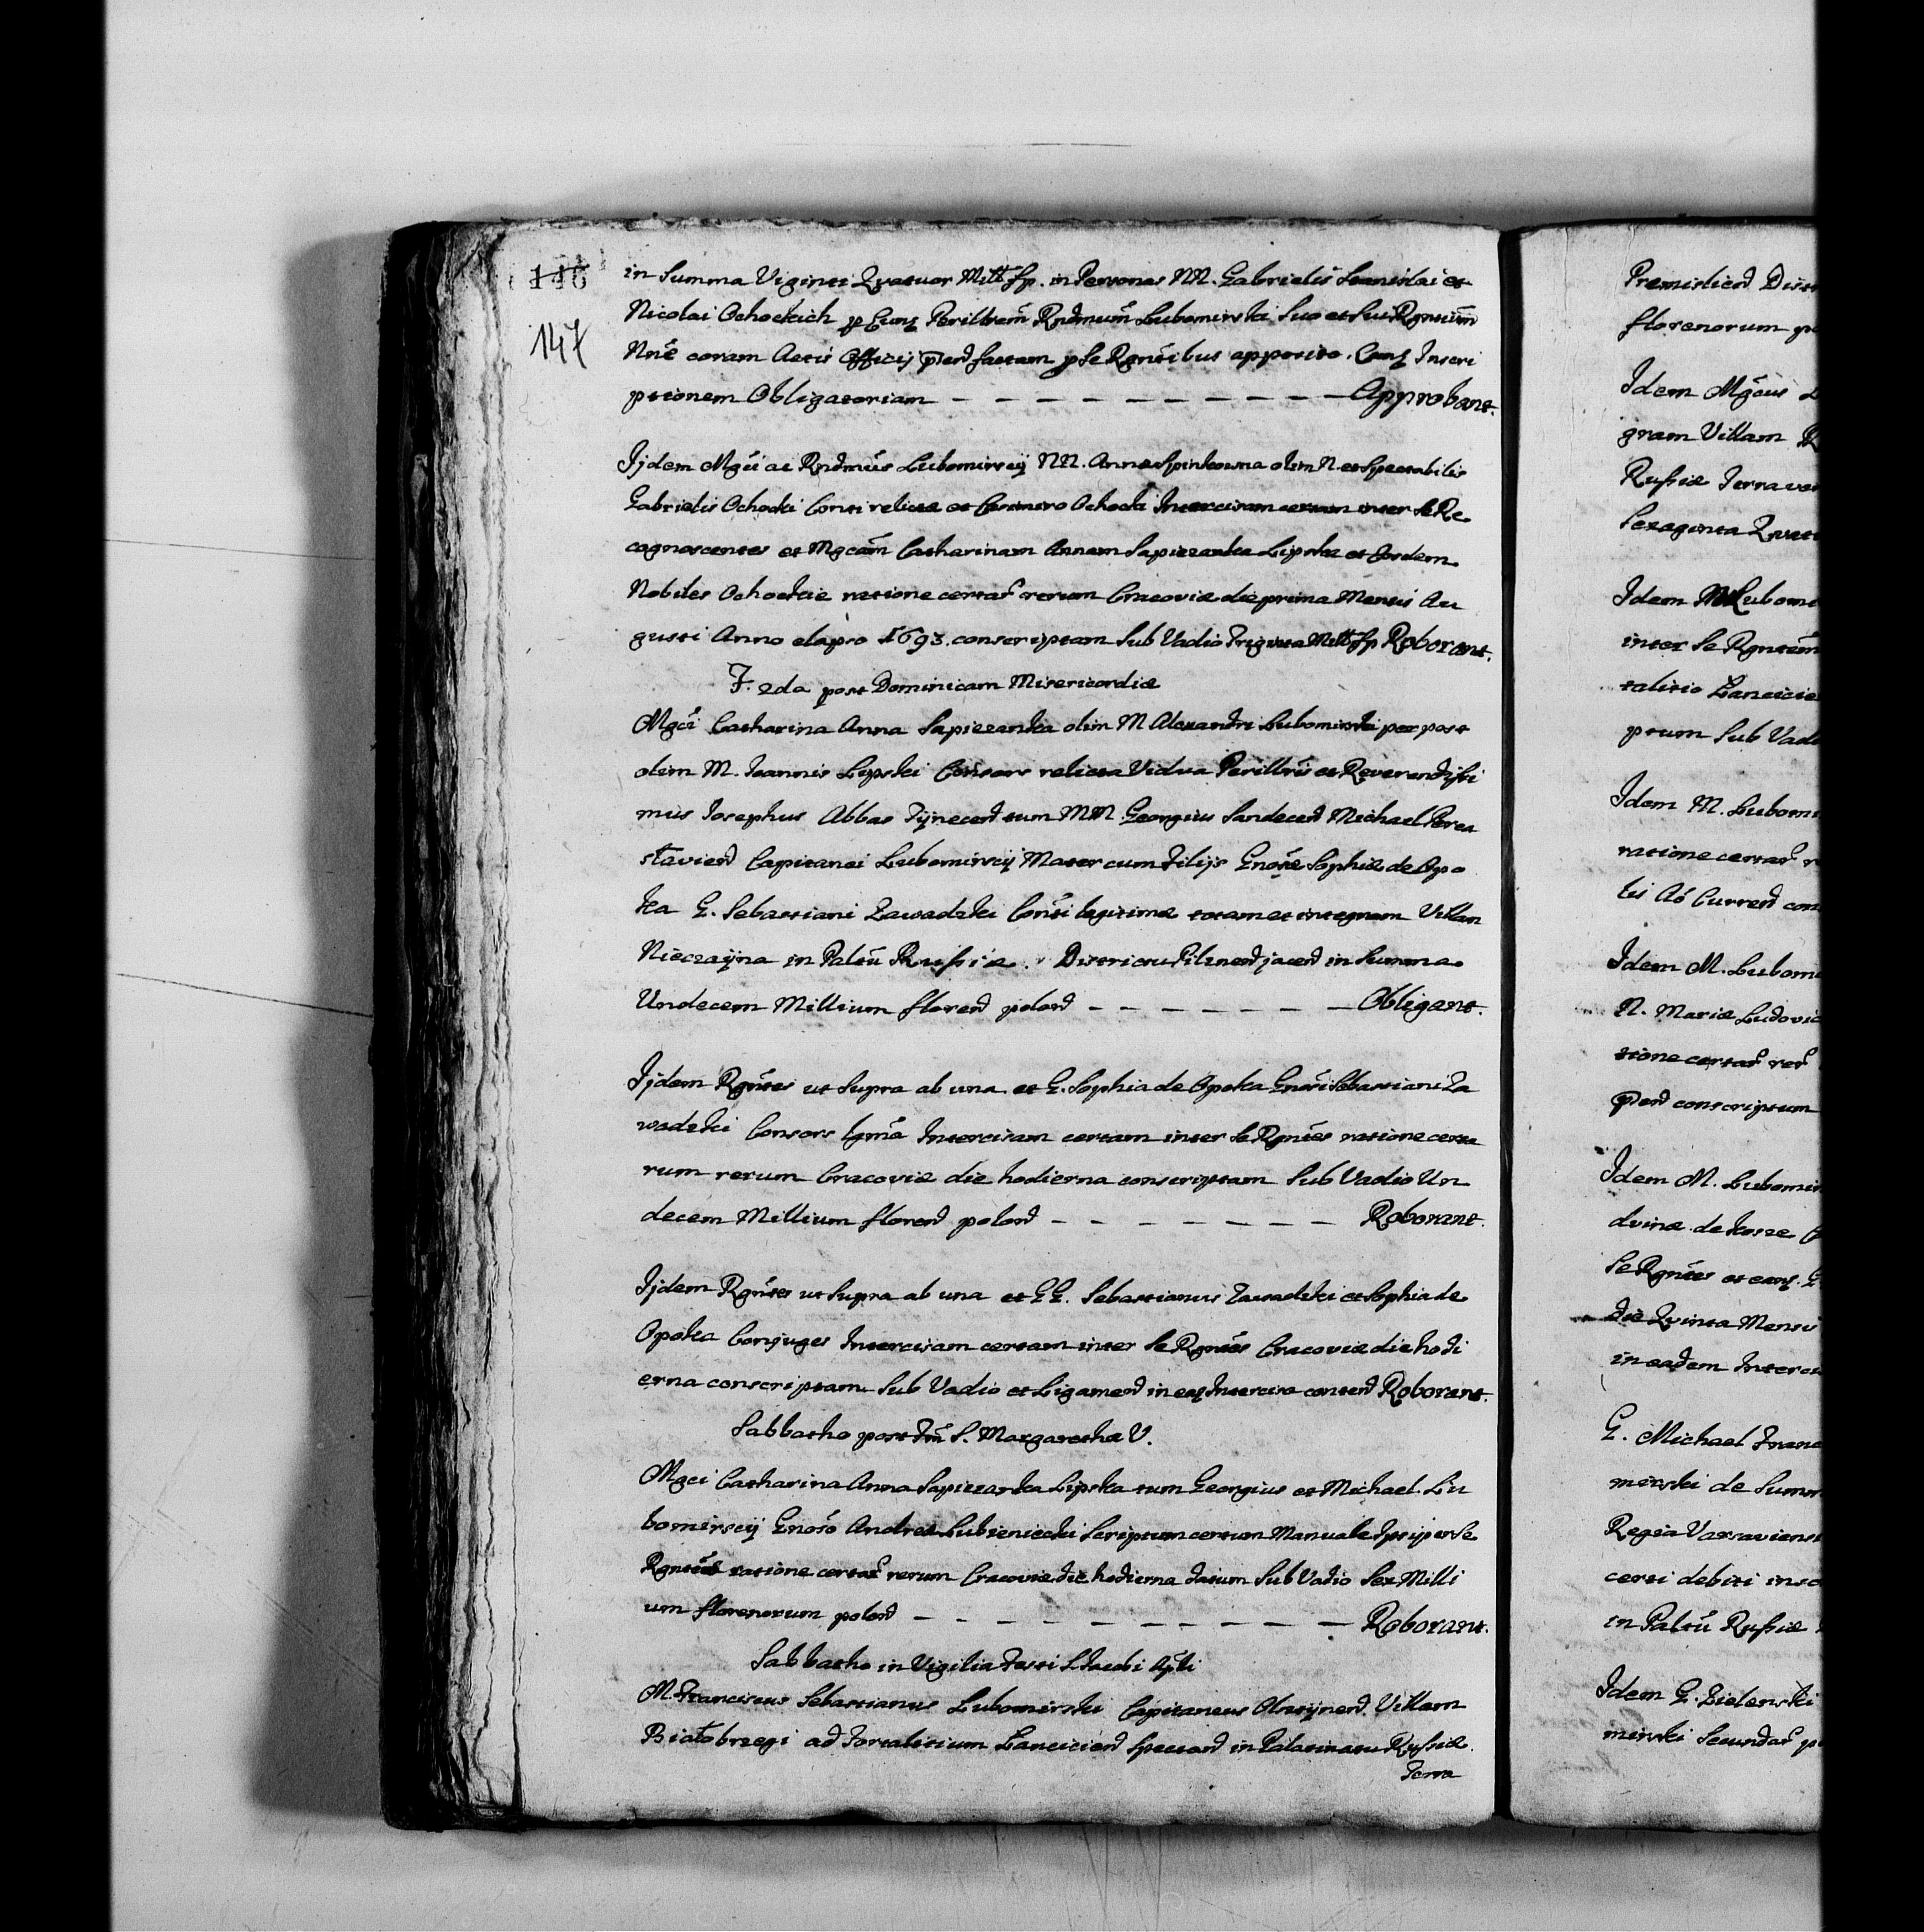 146
147
in Summa Viginti Quatuor Mill fp. in Personas NN. Gabrielis Stanislai et
Nicolai Ochockich p Eunq Perillrem Rndmum Lubomirski Suo et Sui Rgntium
Nne coram Actis Officij pnd factam p Se Rgntibus apposito. Eunq Inscri
ptionem Obligatoriam — — — — — — — — — — Approbant.
Ijdem Mgci ac Rndmus Lubomirscij NN. Anna olim N. et Spectabilis
Gabrielis Ochocki Consi relicta et Casimiro Ochocki Intercisam certam inter Se Re
cognoscentes et Mgcam Catharinam Annam Sapiezanka Lipska et Eosdem
Nobiles Ochockie ratione certar rerum Cracoviæ die prima Mensis Au
gusti Anno elapso 1693. conscriptam Sub Vadio Triginta Mill fp Roborant.
F. 2da post Dominicam Misericordiæ
Mgci Catharina Anna Sapiezanka olim M Alexandri Lubomirski per post
olim M. Joannis Lipski Consors relicta Vidua Perillris et Reverendissi
mus Josephus Abbas Tÿnecend tum MM. Georgius Sandecend Michael Perea
slaviend Capitanei Lubomirscij Mater cum Filijs Gnosæ Sophiæ de Opo
ka G. Sebastiani Zawadzki Consi legitimæ totam et integram Villam
Nieczajna in Paltu Russiæ. Districtu Pilznend jacend in Summa
Undecem Millium florend polond — — — — — — — Obligant.
Ijdem Rgntes ut Supra ab una et G. Sophia de Opoka Gnosi Sebastiani Za
wadzki Consors lgma Intercisam certam inter Se Rgntes ratione certa
rum rerum Cracoviæ die hodierna conscriptam Sub Vadio Un
decem Millium florend polond — — — — — — — — Roborant.
Ijdem Rgntes ut Supra ab una et GG. Sebastianus Zawadzki et Sophia de
Opoka Conjuges Intercisam certam inter Se Rgntes Cracoviæ die hodi
erna conscriptam Sub Vadio et Ligamend in eaq Intercisa contend Roborant.
Sabbatho post Fm S. Margarethæ V.
Mgci Catharina Anna Sapiezanka Lipska tum Georgius et Michael Lu
bomirscij Gnoso Andreæ Lubieniecki Scriptum certum Manuale Ipsi per Se
Rgntes ratione certar rerum Cracoviæ die hodierna datum Sub Vadio Sex Milli
um florenorum polond — — — — — — — — — Roborant.
Sabbatho in Vigilia Festi S Jacobi Apli
M. Franciscus Sebastianus Lubomirski Capitaneus Olsztynend Villam
Białobrzegi ad Fortalitium Lanciciend Spectand in Palatinatu Russiæ
Terra
Premisliend Distr
florenorum po
Idem Mgcus L
gram Villam
Russiæ Terra
Sexaginta Quat
Idem M Lubomi
inter Se Rgntem
talitio Lancicie
ptum Sub Vad
Idem M. Lubomi
ratione certar r
lis Ao Currend con
Idem M. Lubom
N. Mariæ Ludovic
tione certar rer
pnd conscriptum
Idem M. Lubomir
dvinæ de
Se Rgntes et eanq. G
die Quinta Mensis
in eadem Interci
G. Michael Franc
mirski de Summ
Regia Varsaviens
certi debiti insc
in Paltu Russiæ
Idem G. Zielenski
mirski Secundar p